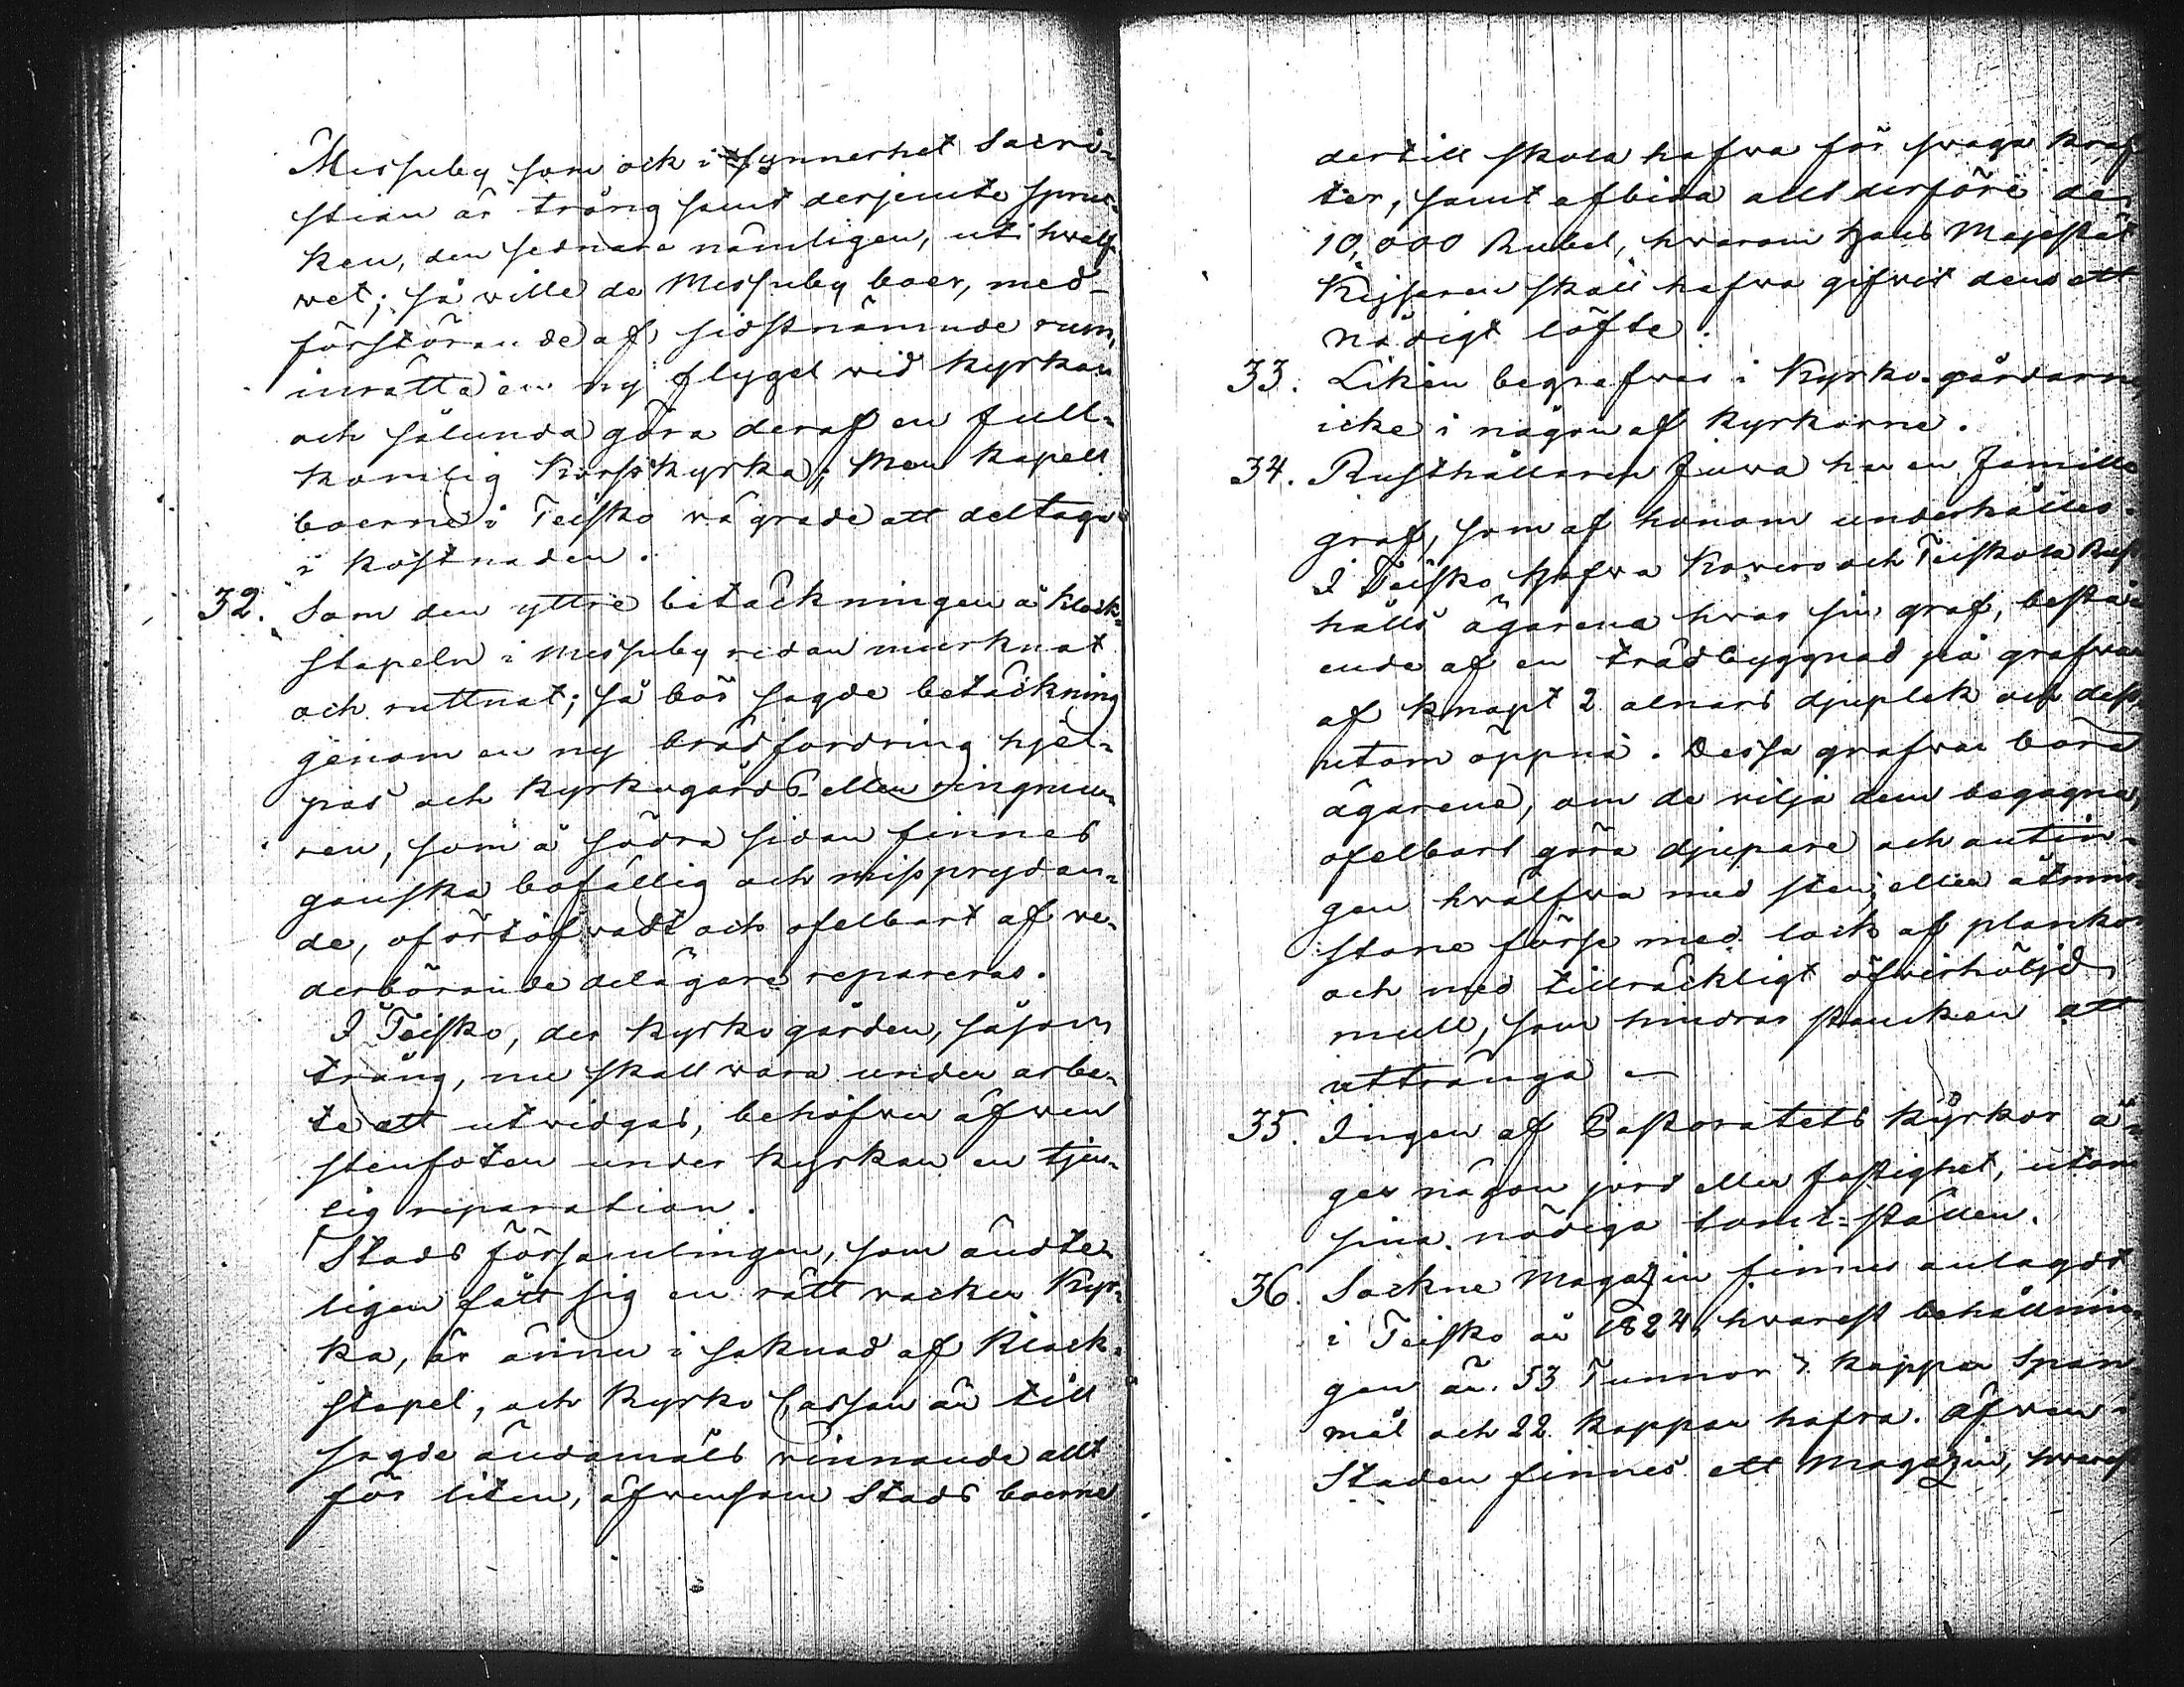 Messuby som ock i synnerhet Sacri-
stian är trång samt derjemte sprucken,
ken, den sednare nämligen, uti hvalf-
vet; så ville de Messuby boer, med
förstörande af sidstnämnde rum,
inrätta en ny flygel vid kyrkan
och sålunda göra deraf en full-
komlig Korsskyrka; Men Kapell
boerne i Teisko vägrade att deltaga
i kostnaden.
32. Som den yttre betäckningen å klock-
stapeln i Messuby redan murknat
och ruttnat; så bör sagde betäckning
genom en ny brädfordring hjel-
pas och Kyrkogårds eller ringmu-
ren, som å södra sidan finnes
ganska bofällig och misspprydan-
de, oförtöfvadt och ofelbart af ve-
derbörande delägare repareras.
I Teisko, der kyrkogården, såsom
trång, nu skall vara under arbe-
te att utvidgas, behöfver äfven
stenfoten under kyrkan en tjen-
lig reparation.
Stads församlingen, som ändte-
ligen fått sig en rätt vacker Kyr-
ka, är ännu i saknad af Klock-
stapel, och Kyrko Cassan är till
sagde ändamåls vinnande allt
för liten, äfvensom Stads boerne
dertill skola hafva för svaga kraf
ter, samt afbida allt derföre de
10,000 Rubel, hvarom Hans Majestät
Kejsaren skall hafva gifvit dem ett
nådigt löfte.
33. Liken begrafvas i Kyrko-gårdarne
icke i någon af kyrkorne.
34. Rusthållaren Juva har en familie
graf, som af honom underhålles.
I Teisko hafva Kovero och Teiskola Rust
hålls ägarena hvar sin graf, beståe
ende af en trädbyggnad på grafven
af knapt 2 alnars djuplek och dess
utom öppna. Dessa grafvar böra
ägarene, om de vilja dem begagna,
ofelbart göra djupare och antin-
gen hvälfva med sten, eller åtmin-
stone förse med lock af plankor
och med tillräckligt öfverhöljd
mull, som hindrar stanken att
uttränga –
35. Ingen af Pastoratets kyrkor ä-
ger någon jord eller fastighet, utom
sina nödiga tomt-ställen.
36. Sockne Magazin finnes anlagdt
i Teisko år 1824, hvarest behållnin-
gen är 53 Tunnor 7 kappar Span
mål och 22 kappar hafra. Äfven i
Staden finnes ett Magazin, hvarest